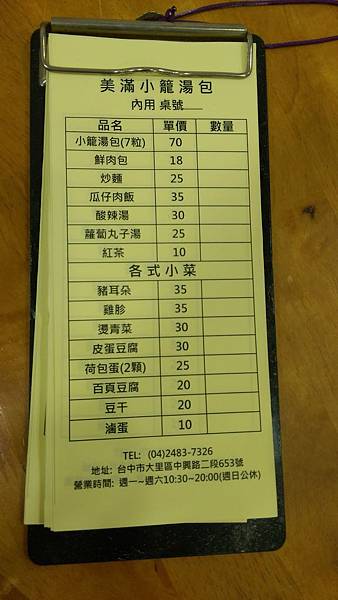 美滿小籠湯包
內用 桌號___
品名 單價 數量
小籠湯包(7粒) 70
鮮肉包 18
炒麵 25
瓜仔肉飯 35
酸辣湯 30
蘿蔔丸子湯 25
紅茶 10
各式小菜
豬耳朵 35
雞胗 35
燙青菜 30
皮蛋豆腐 30
荷包蛋(2顆) 25
百頁豆腐 20
豆干 20
滷蛋 10
TEL: (04)2483-7326
地址: 台中市大里區中興路二段653號
營業時間: 週一~週六10:30~20:00(週日公休)